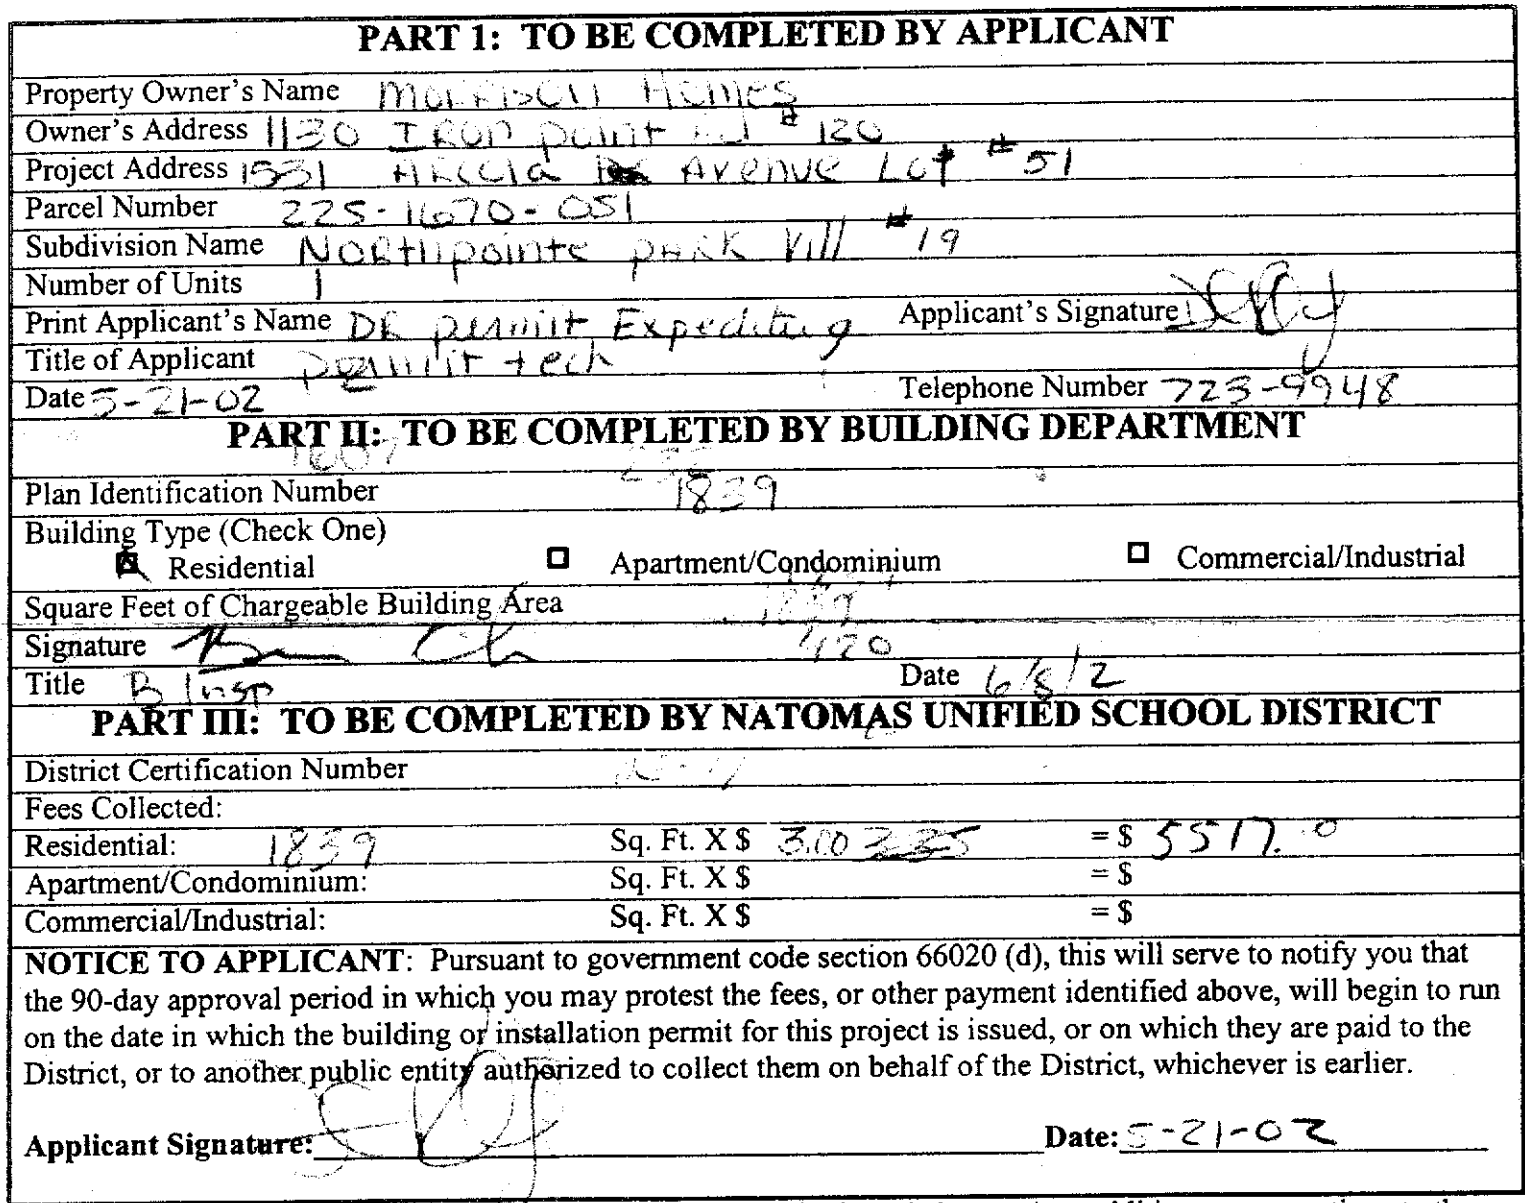 PART 1: TO BE COMPLETED BY APPLICANT
Property Owner's Name Morrison Homes
Owner's Address 1130 IRON point Rd # 120
Project Address 1531 Avenue Lot # 51
Parcel Number 225-1670-051
Subdivision Name Northpointe PARK Vill # 19
Number of Units 1
Print Applicant's Name DR permit Expediting Applicant's Signature
Title of Applicant permit tech
Date 5-21-02 Telephone Number 723-9948
PART II: TO BE COMPLETED BY BUILDING DEPARTMENT
1607
Plan Identification Number 1839
Building Type (Check One)
Residential Apartment/Condominium Commercial/Industrial
Square Feet of Chargeable Building Area 1839
Signature 420
Title B Insp Date 6/8/2
PART III: TO BE COMPLETED BY NATOMAS UNIFIED SCHOOL DISTRICT
District Certification Number
Fees Collected:
Residential: 1839 Sq. Ft. X $ 3.00 = $ 5517.0
Apartment/Condominium: Sq. Ft. X $ = $
Commercial/Industrial: Sq. Ft. X $ = $
NOTICE TO APPLICANT: Pursuant to government code section 66020 (d), this will serve to notify you that
the 90-day approval period in which you may protest the fees, or other payment identified above, will begin to run
on the date in which the building or installation permit for this project is issued, or on which they are paid to the
District, or to another public entity authorized to collect them on behalf of the District, whichever is earlier.
Applicant Signature: Date: 5-21-02